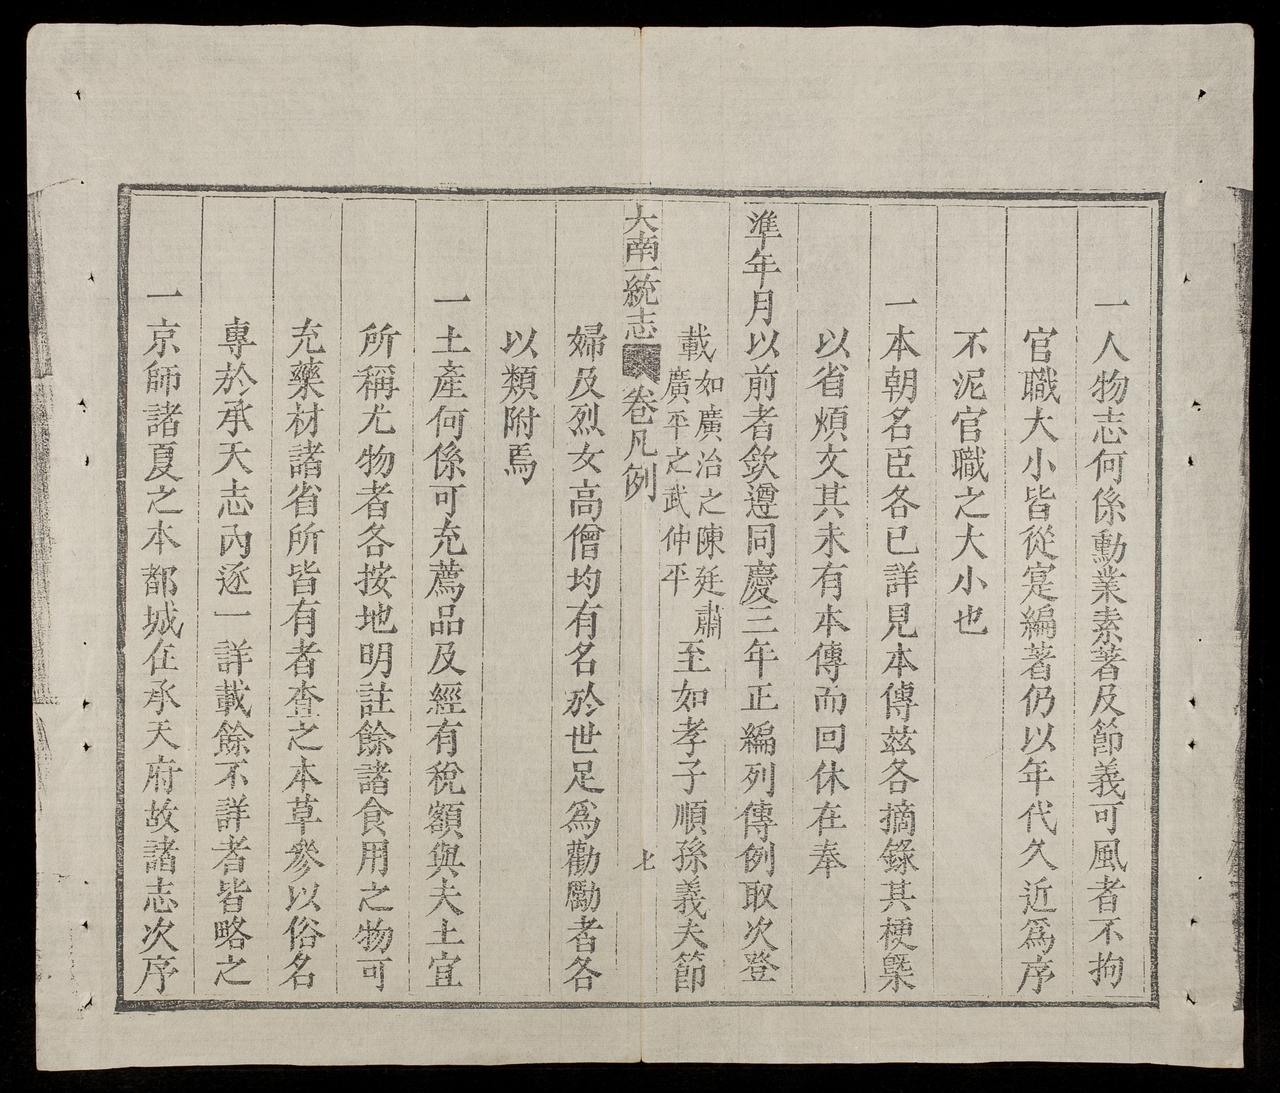 一人物志何係勳業素著及節義可風者不拘
官職大小皆從寔編著仍以年代久近爲序
不泥官職之大小也
一本朝名臣各已詳見本傳玆各摘錄其梗槩
以省煩文其未有本傳而回休在奉
準年月以前者欽遵同慶三年正編列傳例取次登
載如廣治之陳廷肅廣平之武仲平至如孝子順孫義夫節
大南一統志 卷凡例 七
婦及烈女高僧均有名於世足爲勸勵者各
以類附焉
一土產何係可充薦品及經有稅額與夫土宜
所稱尤物者各按地明註餘諸食用之物可
充藥材諸省所皆有者查之本草參以俗名
專於承天志內逐一詳載餘不詳者皆略之
一京師諸夏之本都城在承天府故諸志次序